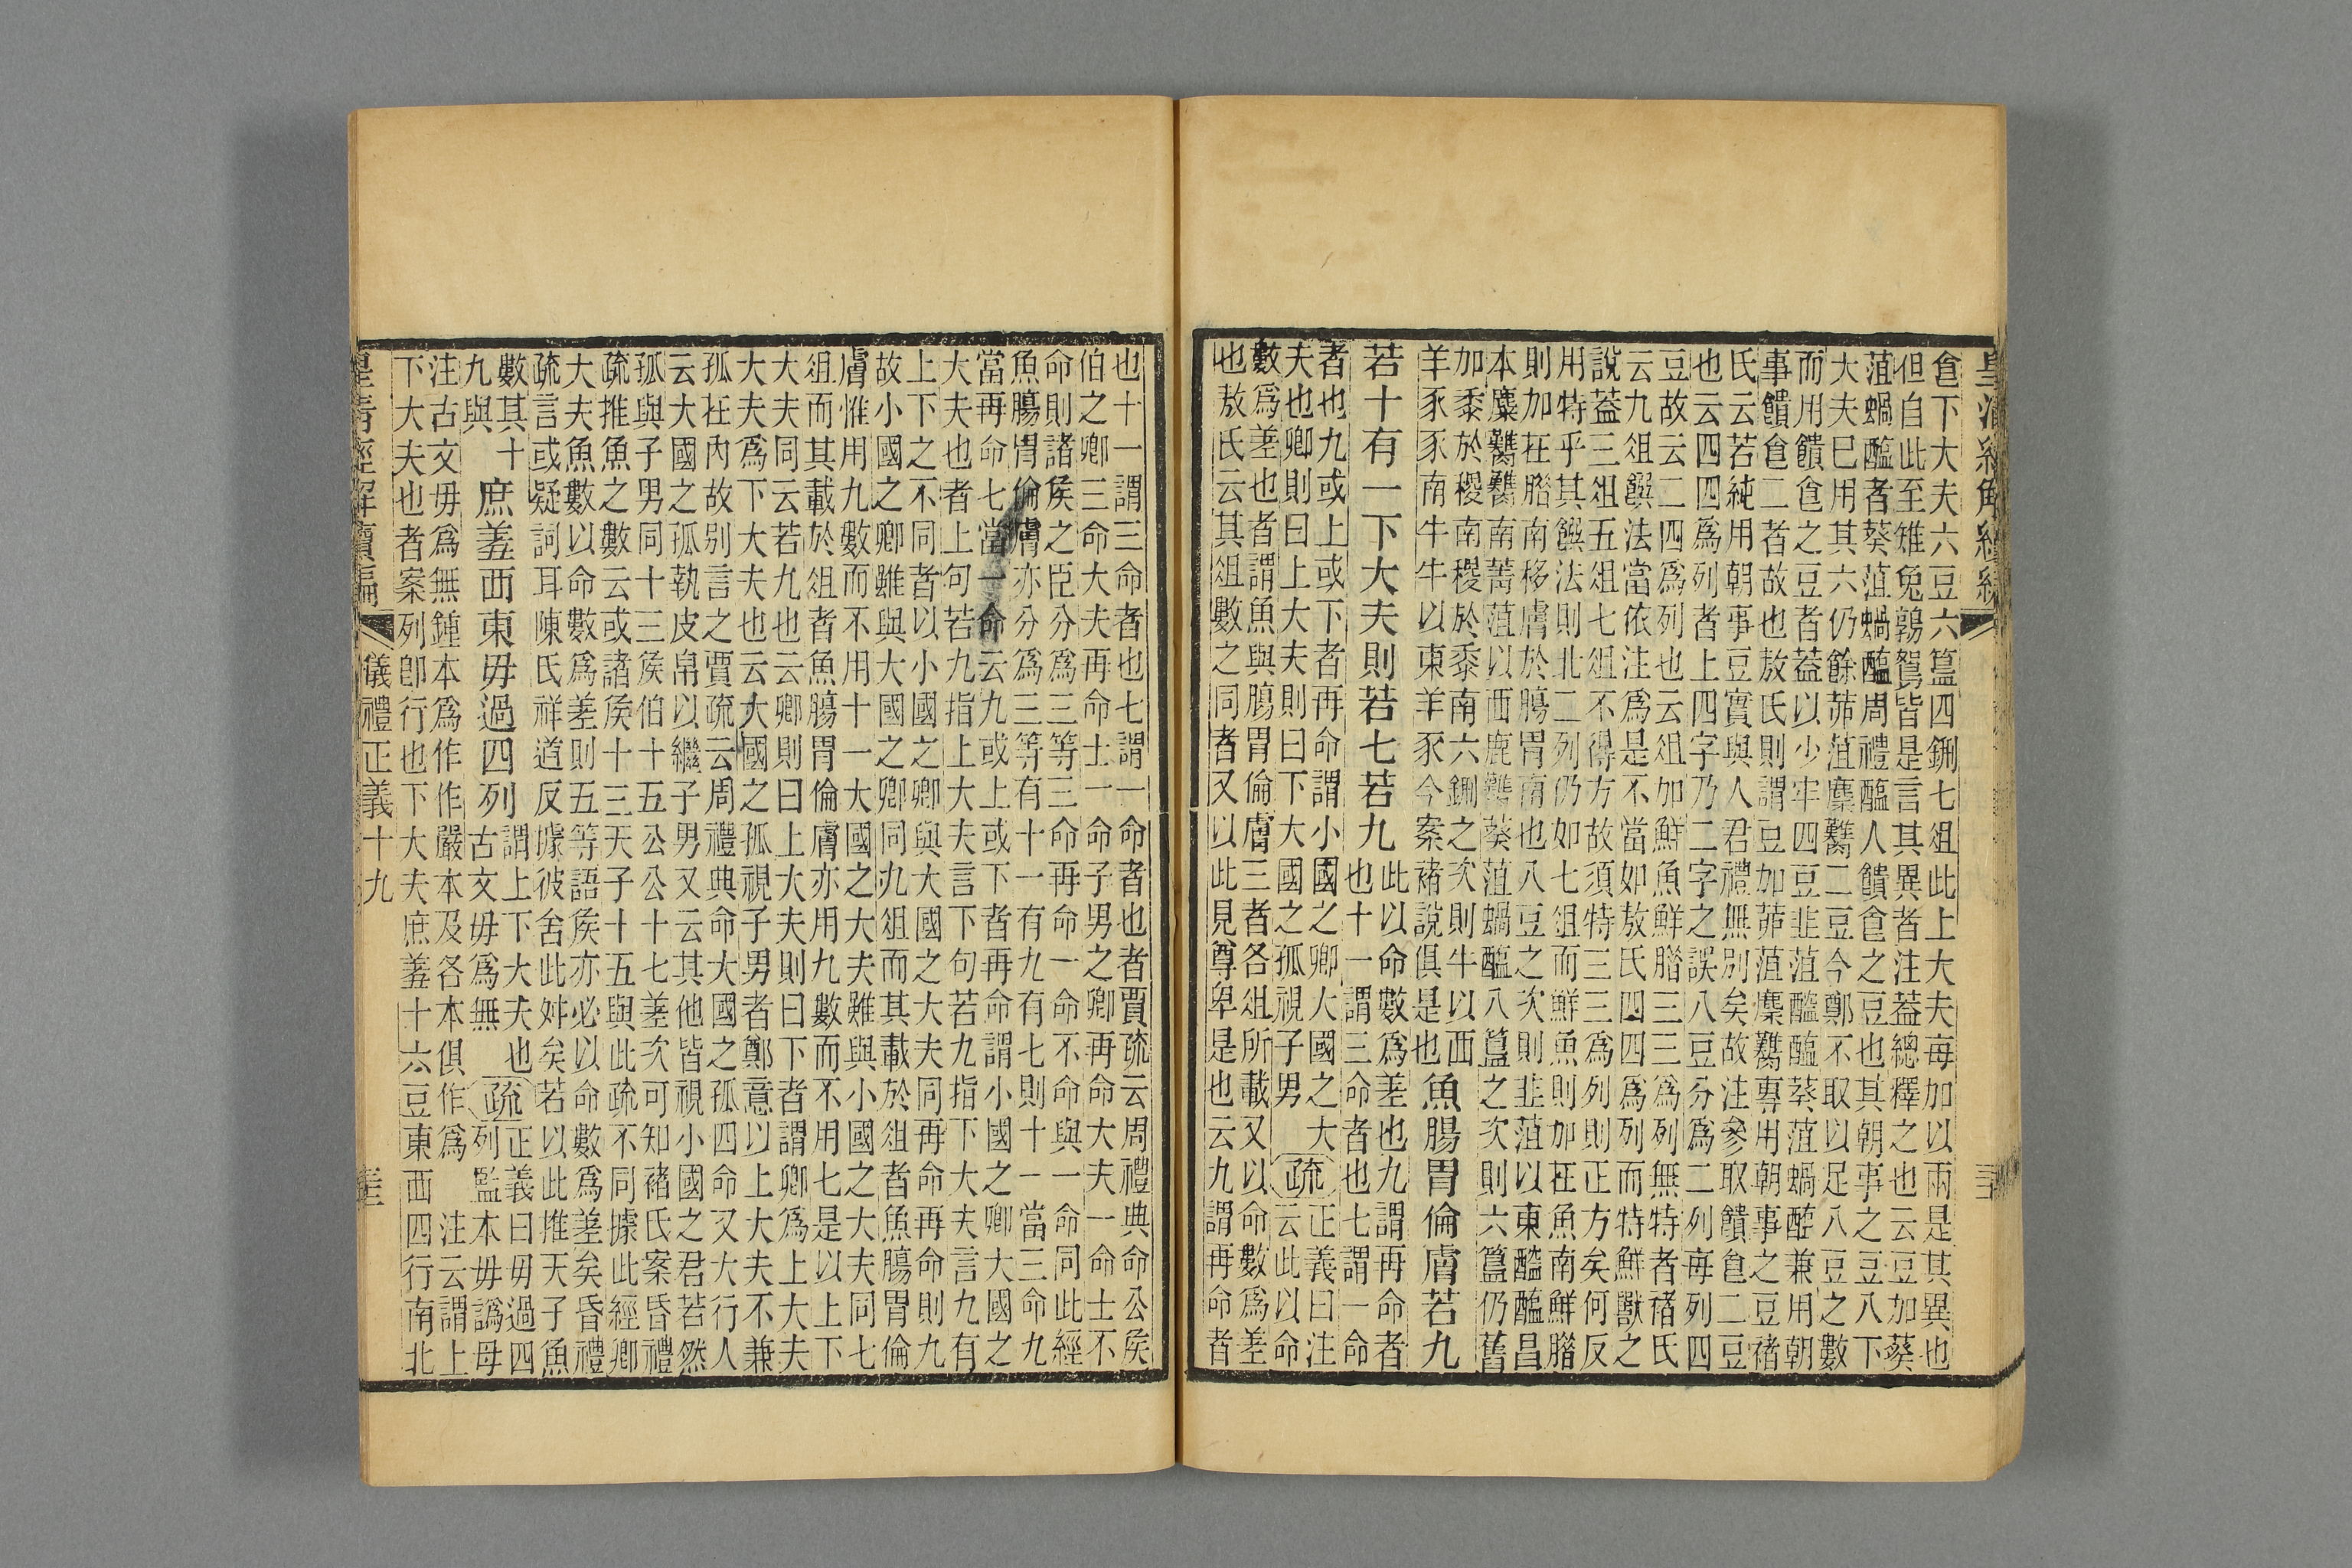 皇清經解續編
食下大夫六豆六簋四鉶七俎此上大夫每加以兩是其異也
但自此至雉兔鶉鴽皆是言其異者注蓋總釋之也云豆加葵
菹蝸醢者葵菹蝸醢周禮醢人饋食之豆也其朝事之豆八下
大夫巳用其六仍餘茆菹麋臡二豆今鄭不取以足八豆之數
而用饋食之豆者蓋以少牢四豆韭菹醓醢葵菹蝸醢兼用朝
事饋食二者故也敖氏則謂豆加茆菹麋臡專用朝事之豆褚
氏云若純用朝事豆實與人君禮無別矣故注參取饋食二豆
也云四四爲列者上四字乃二字之誤八豆分爲二列每列四
豆故云二四爲列也云俎加鮮魚鮮腊三三爲列無特者褚氏
云九俎饌法當依注爲是不當如敖氏四四爲列而特鮮獸之
說葢三俎五俎七俎不得方故須特三三爲列則正方矣何反
用特乎其饌法則北二列仍如七俎而鮮魚則加在魚南鮮腊
則加在腊南移膚於腸胃南也八豆之次則韭菹以東醓醢昌
本麋臡臡南菁菹以西鹿臡葵菹蝸醢八簋之次則六簋仍舊
加黍於稷南稷於黍南六鉶之次則牛以西
羊豕豕南牛牛以東羊豕今案褚說俱是也
魚腸胃倫膚若九
若十有一下大夫則若七若九
此以命數爲差也九謂再命者
也十一謂三命者也七謂一命
者也九或上或下者再命謂小國之卿大國之大
夫也卿則曰上大夫則曰下大國之孤視子男
疏
正義曰注
云此以命
數爲差也者謂魚與腸胃倫膚三者各俎所載又以命數爲差
也敖氏云其俎數之同者又以此見尊卑是也云九謂再命者
也十一謂三命者也七謂一命者也者賈疏云周禮典命公侯
伯之卿三命大夫再命士一命子男之卿再命大夫一命士不
命則諸侯之臣分爲三等三命再命一命不命與一命同此經
魚腸胃倫膚亦分爲三等有十一有九有七則十一當三命九
當再命七當一命云九或上或下者再命謂小國之卿大國之
大夫也者上句若九指上大夫言下句若九指下大夫言九有
上下之不同者以小國之卿與大國之大夫同再命再命則九
故小國之卿雖與大國之卿同九俎而其載於俎者魚腸胃倫
膚惟用九數而不用十一大國之大夫雖與小國之大夫同七
俎而其載於俎者魚腸胃倫膚亦用九數而不用七是以上下
大夫同云若九也云卿則曰上大夫則曰下者謂卿爲上大夫
大夫爲下大夫也云大國之孤視子男者鄭意以上大夫不兼
孤在內故别言之賈疏云周禮典命大國之孤四命又大行人
云大國之孤執皮帛以繼子男又云其他皆視小國之君若然
孤與子男同十三侯伯十五公公十七差次可知褚氏案昏禮
疏推魚之數云或諸侯十三天子十五與此疏不同據此經卿
大夫魚數以命數爲差則五等諸侯亦必以命數爲差矣昏禮
疏言或疑詞耳陳氏祥道反據彼舍此舛矣若以此推天子魚
數其十
九與
庶羞西東毋過四列
謂上下大夫也
古文毋爲無
疏
正義曰毋過四
列監本毋譌母
注古文毋爲無鍾本爲作作嚴本及各本俱作爲 注云謂上
下大夫也者案列卽行也下大夫庶羞十六豆東西四行南北
皇清經解續編
儀禮正義十九